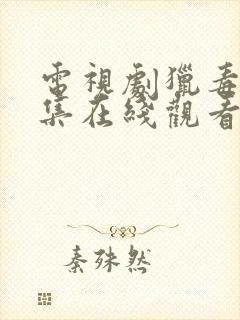 電視劇獵毒
集在綫觀看
秦殊然